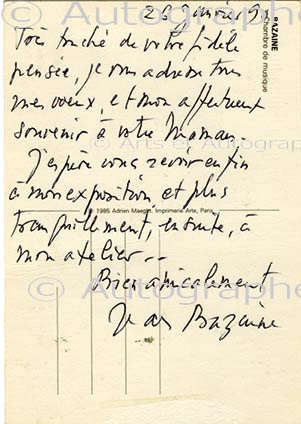 26 Janvier 9
Très touché de votre fidèle
pensée, je vous adresse tous
mes vœux, et mon affectueux
souvenir à votre Maman.
J'espère vous revoir enfin
à mon exposition, et plus
tranquillement, ensuite, à
mon atelier..
Bien amicalement
Jean Bazaine
BAZAINE
chambre de musique
© 1985 Adrien Maeght, Imprimerie Arte, Paris
© Arts et Autographes